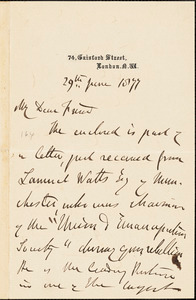 74, Gaisford Street,
London. N.W.
29th June 1877
My Dear Friend
The enclosed is part of
a letter just received from
Samuel Watts Esq of Man-
chester who was Chairman
of the "Union & Emancipation
Society" during your rebellion
He is the leading
in one of the largest